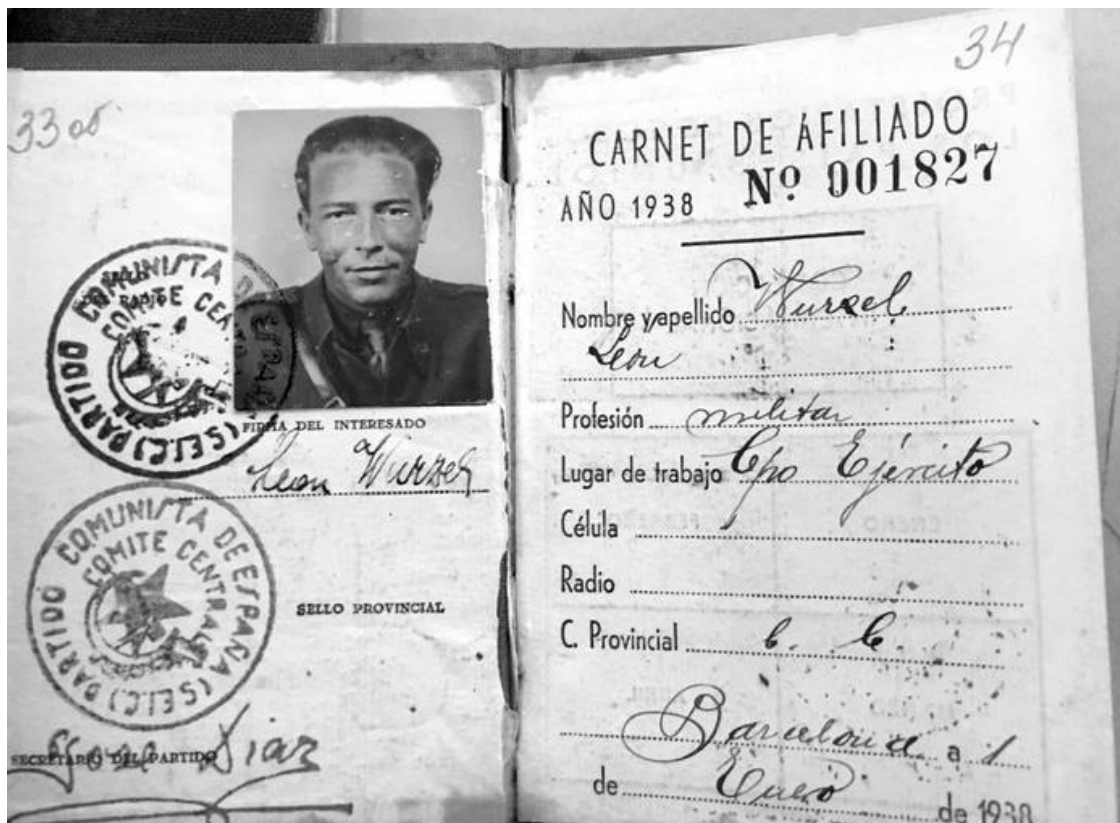 33 об
PARTIDO COMUNISTA DE ESPAÑA (S.E.I.C.)
COMITE CENTRAL
SELLO
DEL RADIO
FIRMA DEL INTERESADO
León Wurzel
PARTIDO COMUNISTA DE ESPAÑA (S.E.I.C.)
COMITE CENTRAL
SELLO PROVINCIAL
SECRETARIO DEL PARTIDO
José Díaz
34
CARNET DE AFILIADO
AÑO 1938 Nº 001827
Nombre y apellido Wurzel
León
Profesión militar
Lugar de trabajo Cpo Ejército
Célula
Radio
C. Provincial C. C.
Barcelona a 1
de Enero de 1938